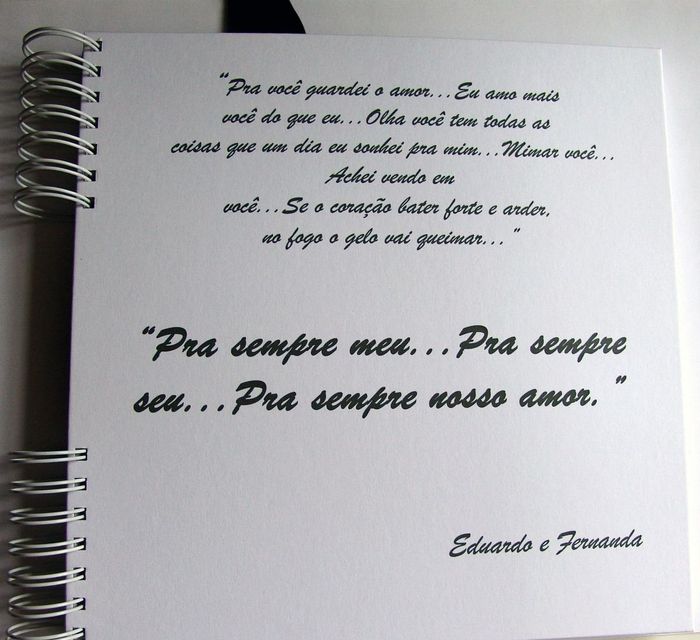 "Pra você guardei o amor...Eu amo mais
você do que eu...Olha você tem todas as
coisas que um dia eu sonhei pra mim...Mimar você...
Achei vendo em
você...Se o coração bater forte e arder,
no fogo o gelo vai queimar..."
"Pra sempre meu...Pra sempre
seu...Pra sempre nosso amor."
Eduardo e Fernanda